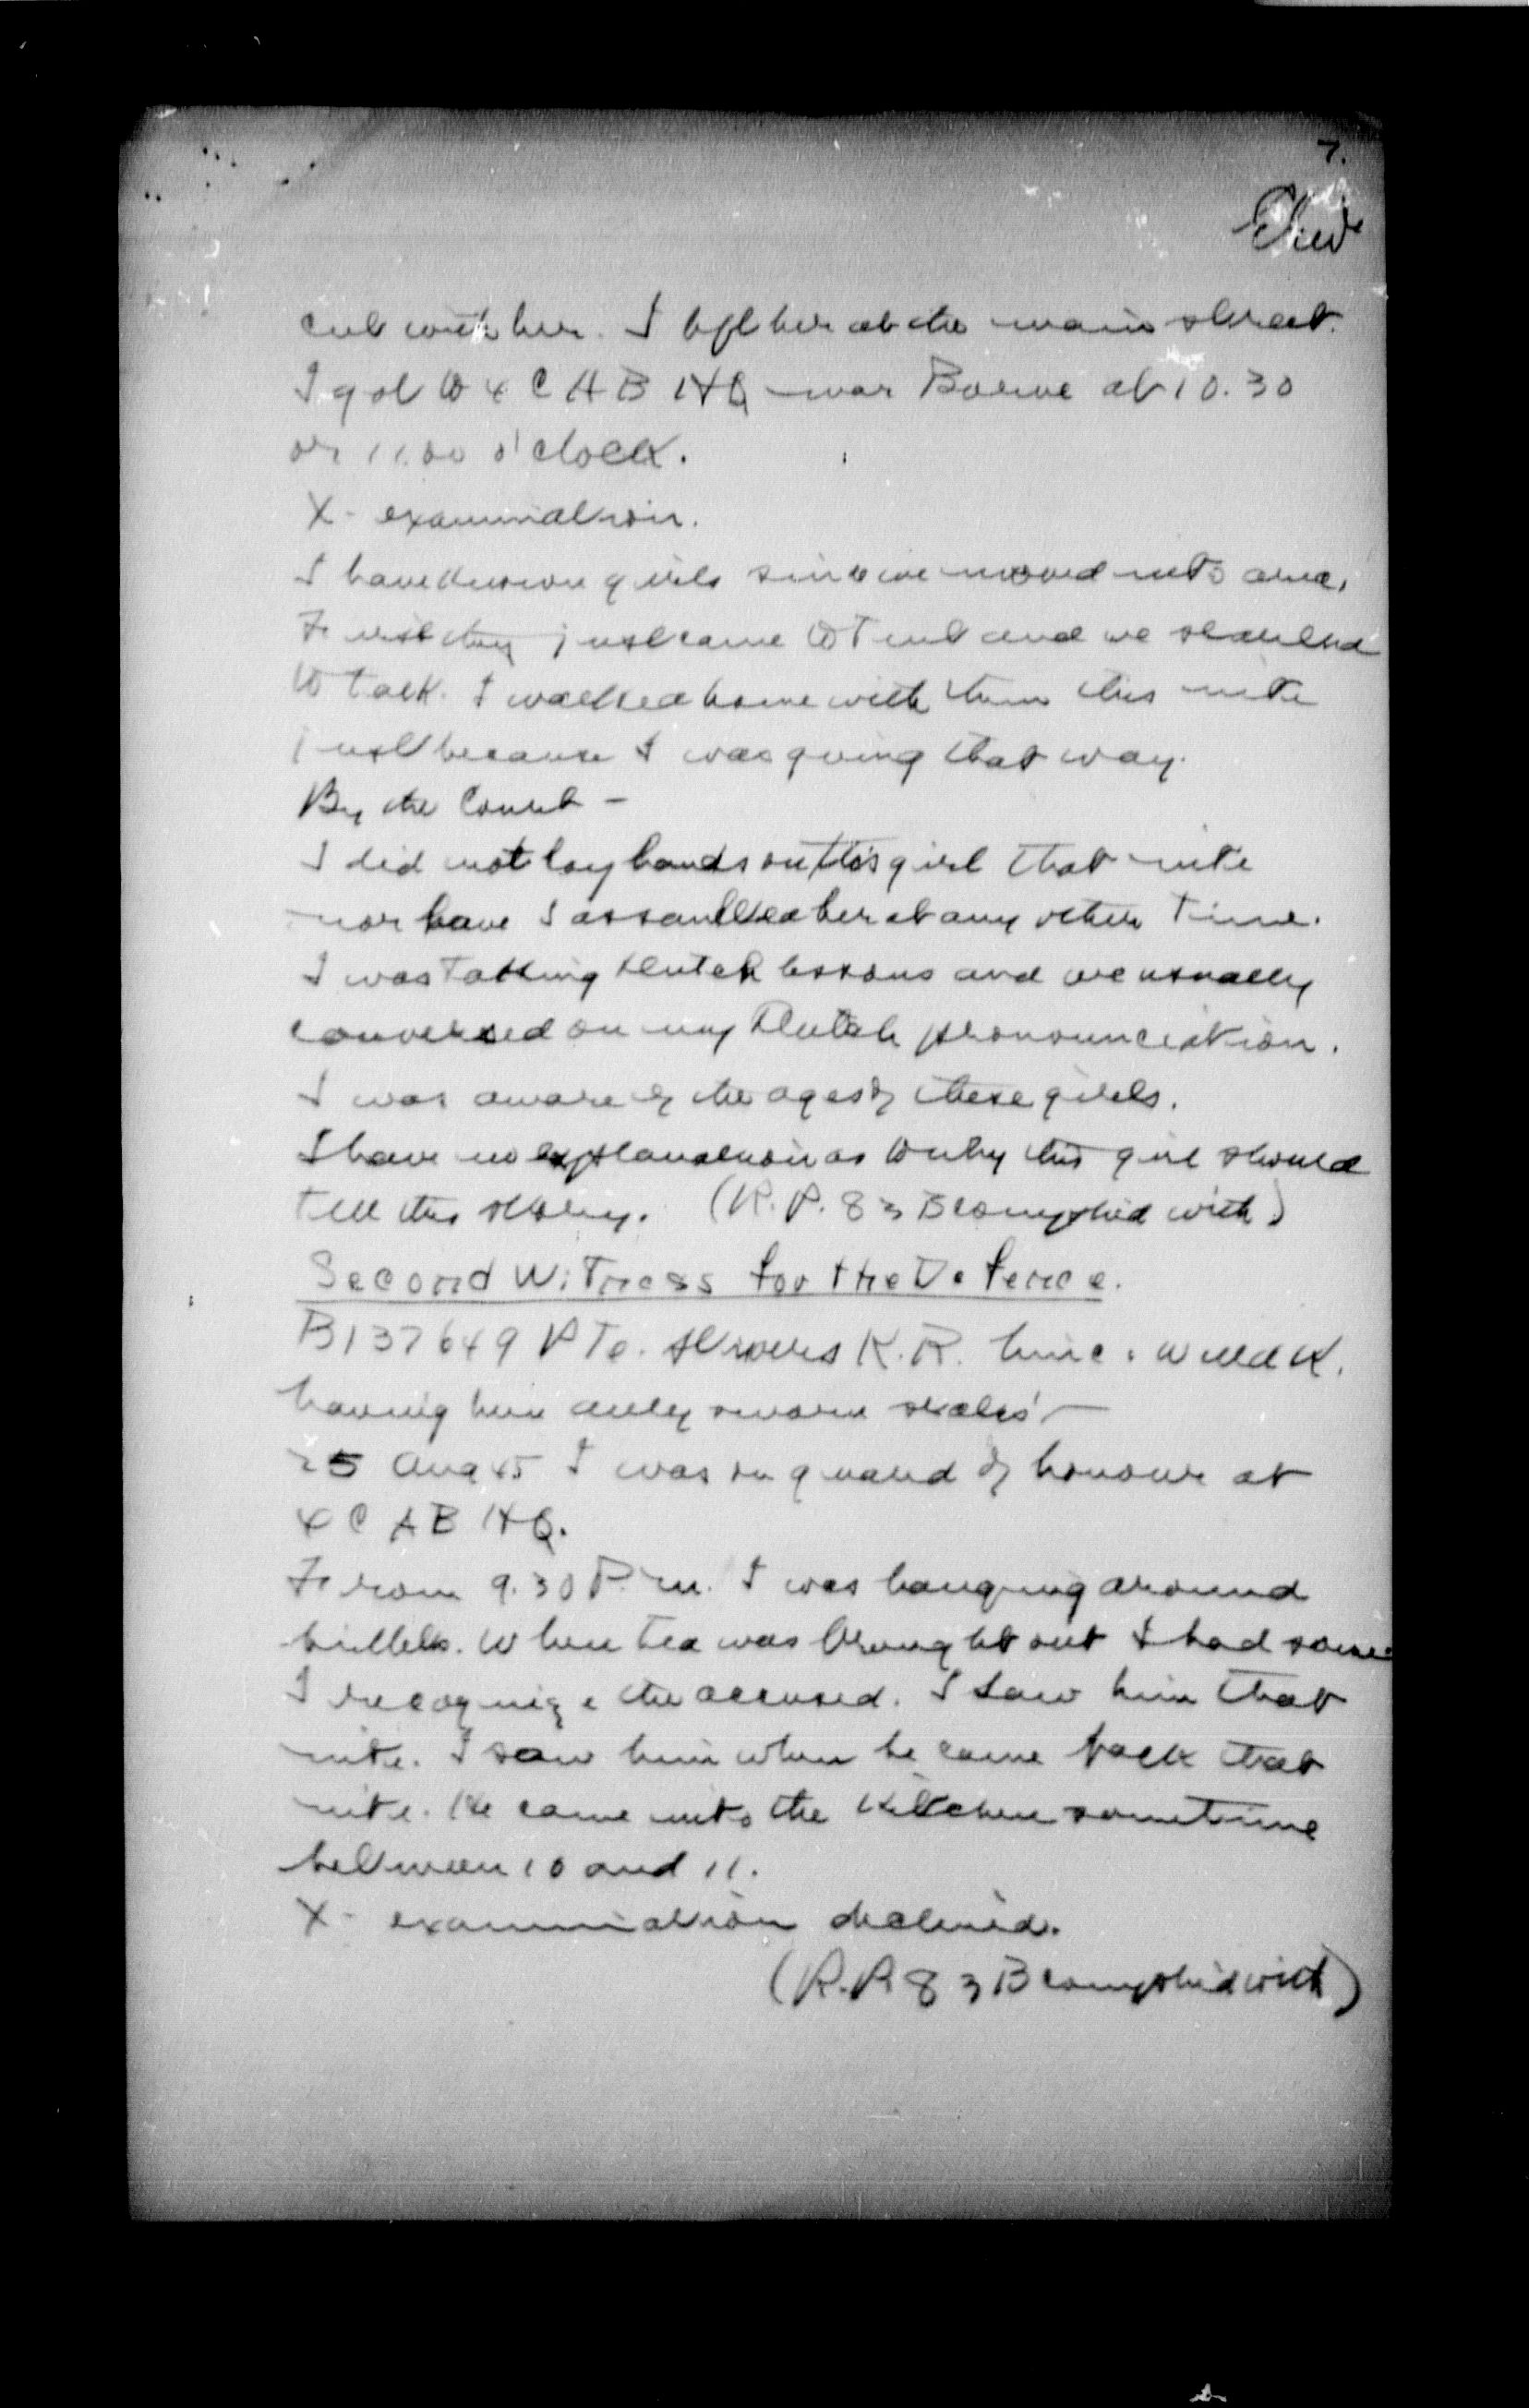 7.
with her. I left her at the main street.
I got to 4 C A B HQ near Borne at 10.30
or 11.00 o'clock.
X - examination.
I have known girls since we moved into area.
First they just came to Tent and we started
to talk. I walked home with them this nite
just because I was going that way.
By the Court -
I did not lay hands on this girl that nite
nor have I assaulted her at any other Time.
I was Taking Dutch lessons and we usually
conversed on my Dutch pronounciation.
I was aware of the ages of these girls.
I have no explanation as to why this girl should
Tell this story. (R.P. 83 B complied with)
Second Witness for the Defence.
B137649 PTe. K.R. Linc. Weld R.
having been duly sworn states -
25 Aug 45 I was on guard of honour at
4 C A B HQ.
From 9.30 P.m. I was hanging around
billets. When Tea was brought out I had some.
I recognize the accused. I saw him that
nite. I saw him when he came back that
nite. He came into the kitchen sometime
between 10 and 11.
X - examination declined.
(R.P. 83 B complied with)